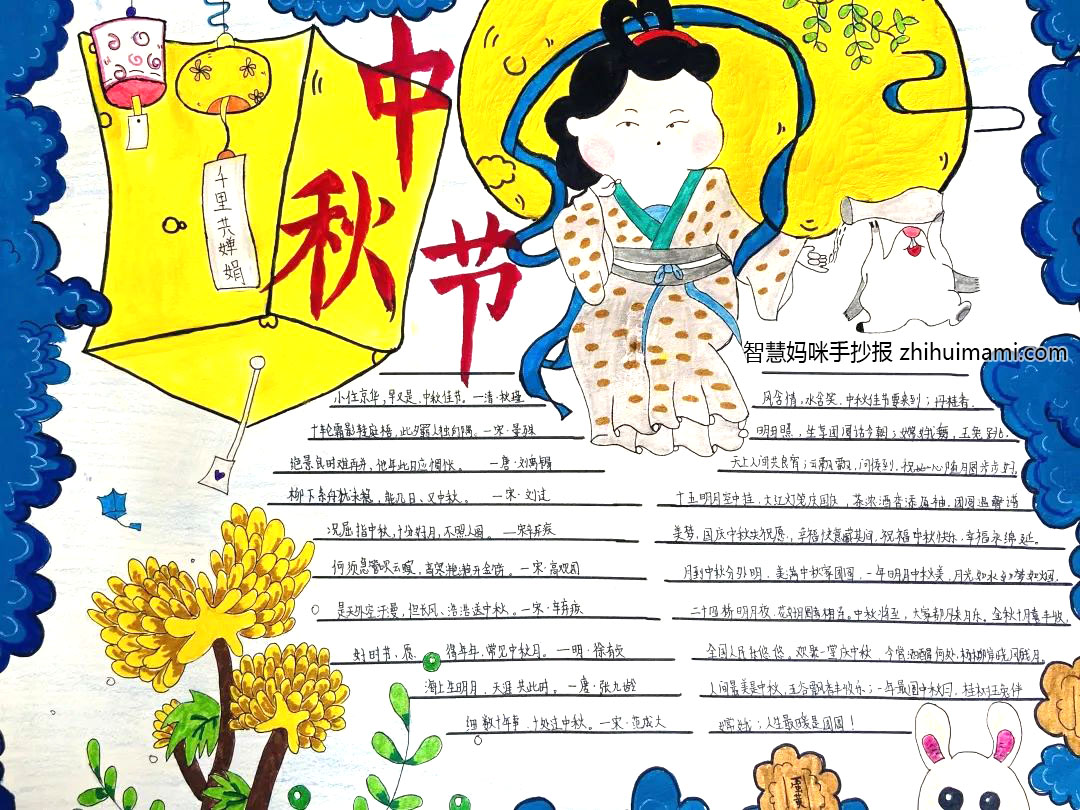 中秋节
千里共婵娟
智慧妈咪手抄报 zhihuimami.com
小住京华,早又是,中秋佳节。—清·秋瑾
十轮霜影转庭梧,此夕羁人独向隅。—宋·晏殊
绝景良时难再并,他年此日应惆怅。 —唐·刘禹锡
柳下系舟犹未稳,能几日、又中秋。 —宋·刘过
况屈指中秋,十分好月,不照人圆。—宋·辛弃疾
何须急管吹云暝,高寒滟滟开金饼。—宋·高观国
是天外空汗漫,但长风、浩浩送中秋。—宋·辛弃疾
好时节,愿 得年年,常见中秋月。—明·徐有贞
海上生明月,天涯共此时。—唐·张九龄
细数十年事,十处过中秋。—宋·范成大
风含情,水含笑,中秋佳节要来到;丹桂香,
明月照,生享团圆话今朝;嫦娥舞,玉兔
天上人间共良宵;云飘飘,问候到,祝
十五明月空中挂,大红灯笼庆国庆,茶浓酒香
美梦,国庆中秋失祝愿,幸福快意藏其间,祝福中秋快乐,幸福永绵延。
月到中秋分外明,美满中秋家团圆,一年明月中秋美,月光如水
二十四桥明月夜,花好月圆 中秋将至,大家都
全国人民 欢聚一堂庆中秋 今宵酒醒何处,杨柳岸晓风残月。
人间最美是中秋,五谷飘香丰收乐;一年最圆中秋月,桂树玉兔伴
嫦娥;人生最暖是团圆!